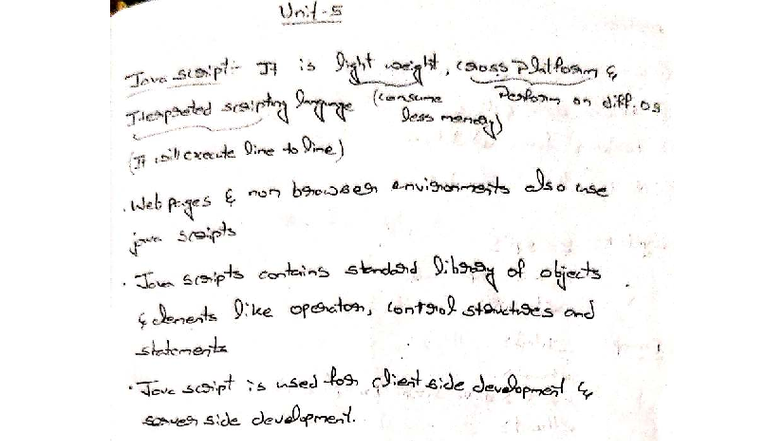 Unit-5
Java script:- It is light weight, cross Platform &
Interpreted scripting language (consume Perform on diff. os
less memory)
(It will execute line to line)
. Web pages & non browser environments also use
java scripts
. Java scripts contains standard library of objects
& elements like operators, control structures and
statements
. Java script is used for client side development &
server side development.